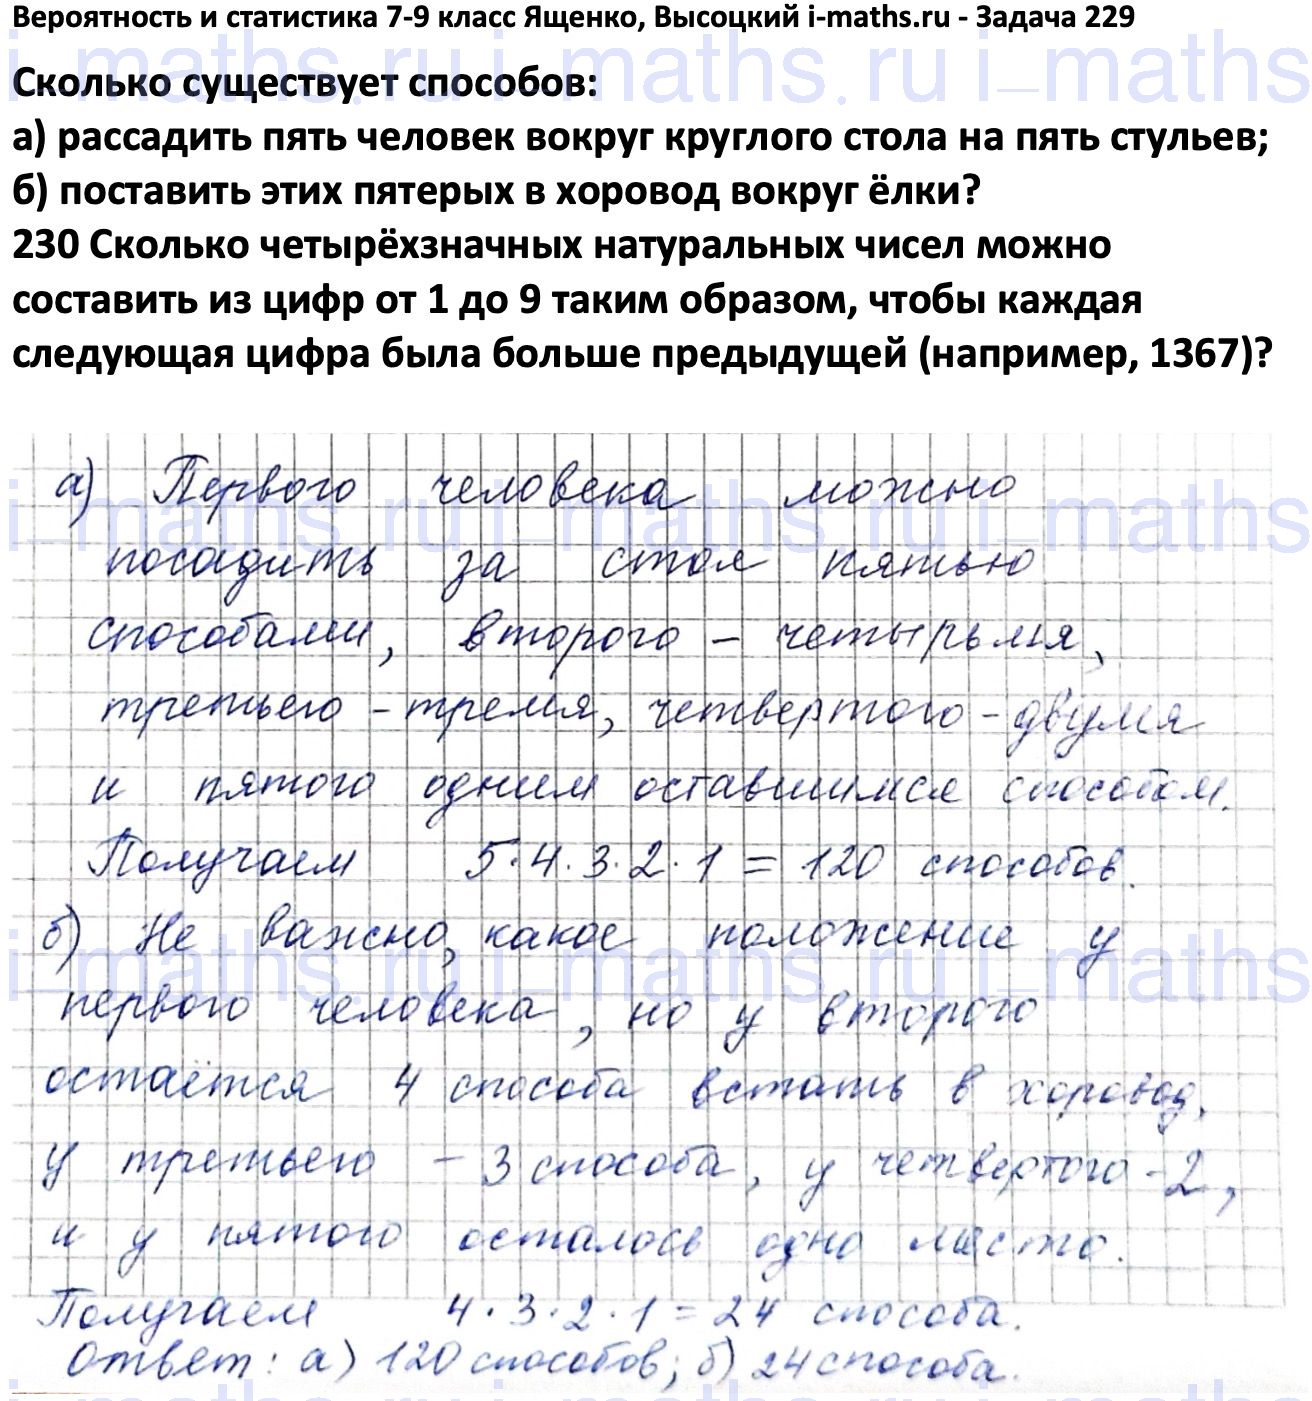 Вероятность и статистика 7-9 класс Ященко, Высоцкий i-maths.ru - Задача 229
i-maths.ru i-maths.ru i-maths
Сколько существует способов:
а) рассадить пять человек вокруг круглого стола на пять стульев;
б) поставить этих пятерых в хоровод вокруг ёлки?
230 Сколько четырёхзначных натуральных чисел можно
составить из цифр от 1 до 9 таким образом, чтобы каждая
следующая цифра была больше предыдущей (например, 1367)?
а) Первого человека можно
i-maths.ru i-maths.ru i-maths
посадить за стол пятью
способами, второго - четырьмя,
третьего - тремя, четвертого - двумя
и пятого одним оставшимся способом.
Получаем 5·4·3·2·1 = 120 способов.
б) Не важно, какое положение у
i-maths.ru i-maths.ru i-maths
первого человека, но у второго
остаётся 4 способа встать в хоровод,
у третьего - 3 способа, у четвертого - 2,
и у пятого осталось одно место.
Получаем 4·3·2·1 = 24 способа.
Ответ: а) 120 способов; б) 24 способа.